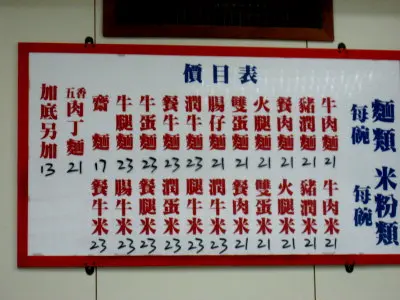 價目表
麵類 每碗
米粉類 每碗
牛肉麵 21
豬潤麵 21
餐肉麵 21
火腿麵 21
雙蛋麵 21
腸仔麵 21
潤牛麵 23
餐牛麵 23
牛蛋麵 23
牛腿麵 23
齋麵 17
五香肉丁麵 21
加底另加 13
牛肉米 21
豬潤米 21
火腿米 21
雙蛋米 21
餐肉米 21
潤牛米 23
腿牛米 23
潤蛋米 23
餐腿米 23
腸牛米 23
餐牛米 23